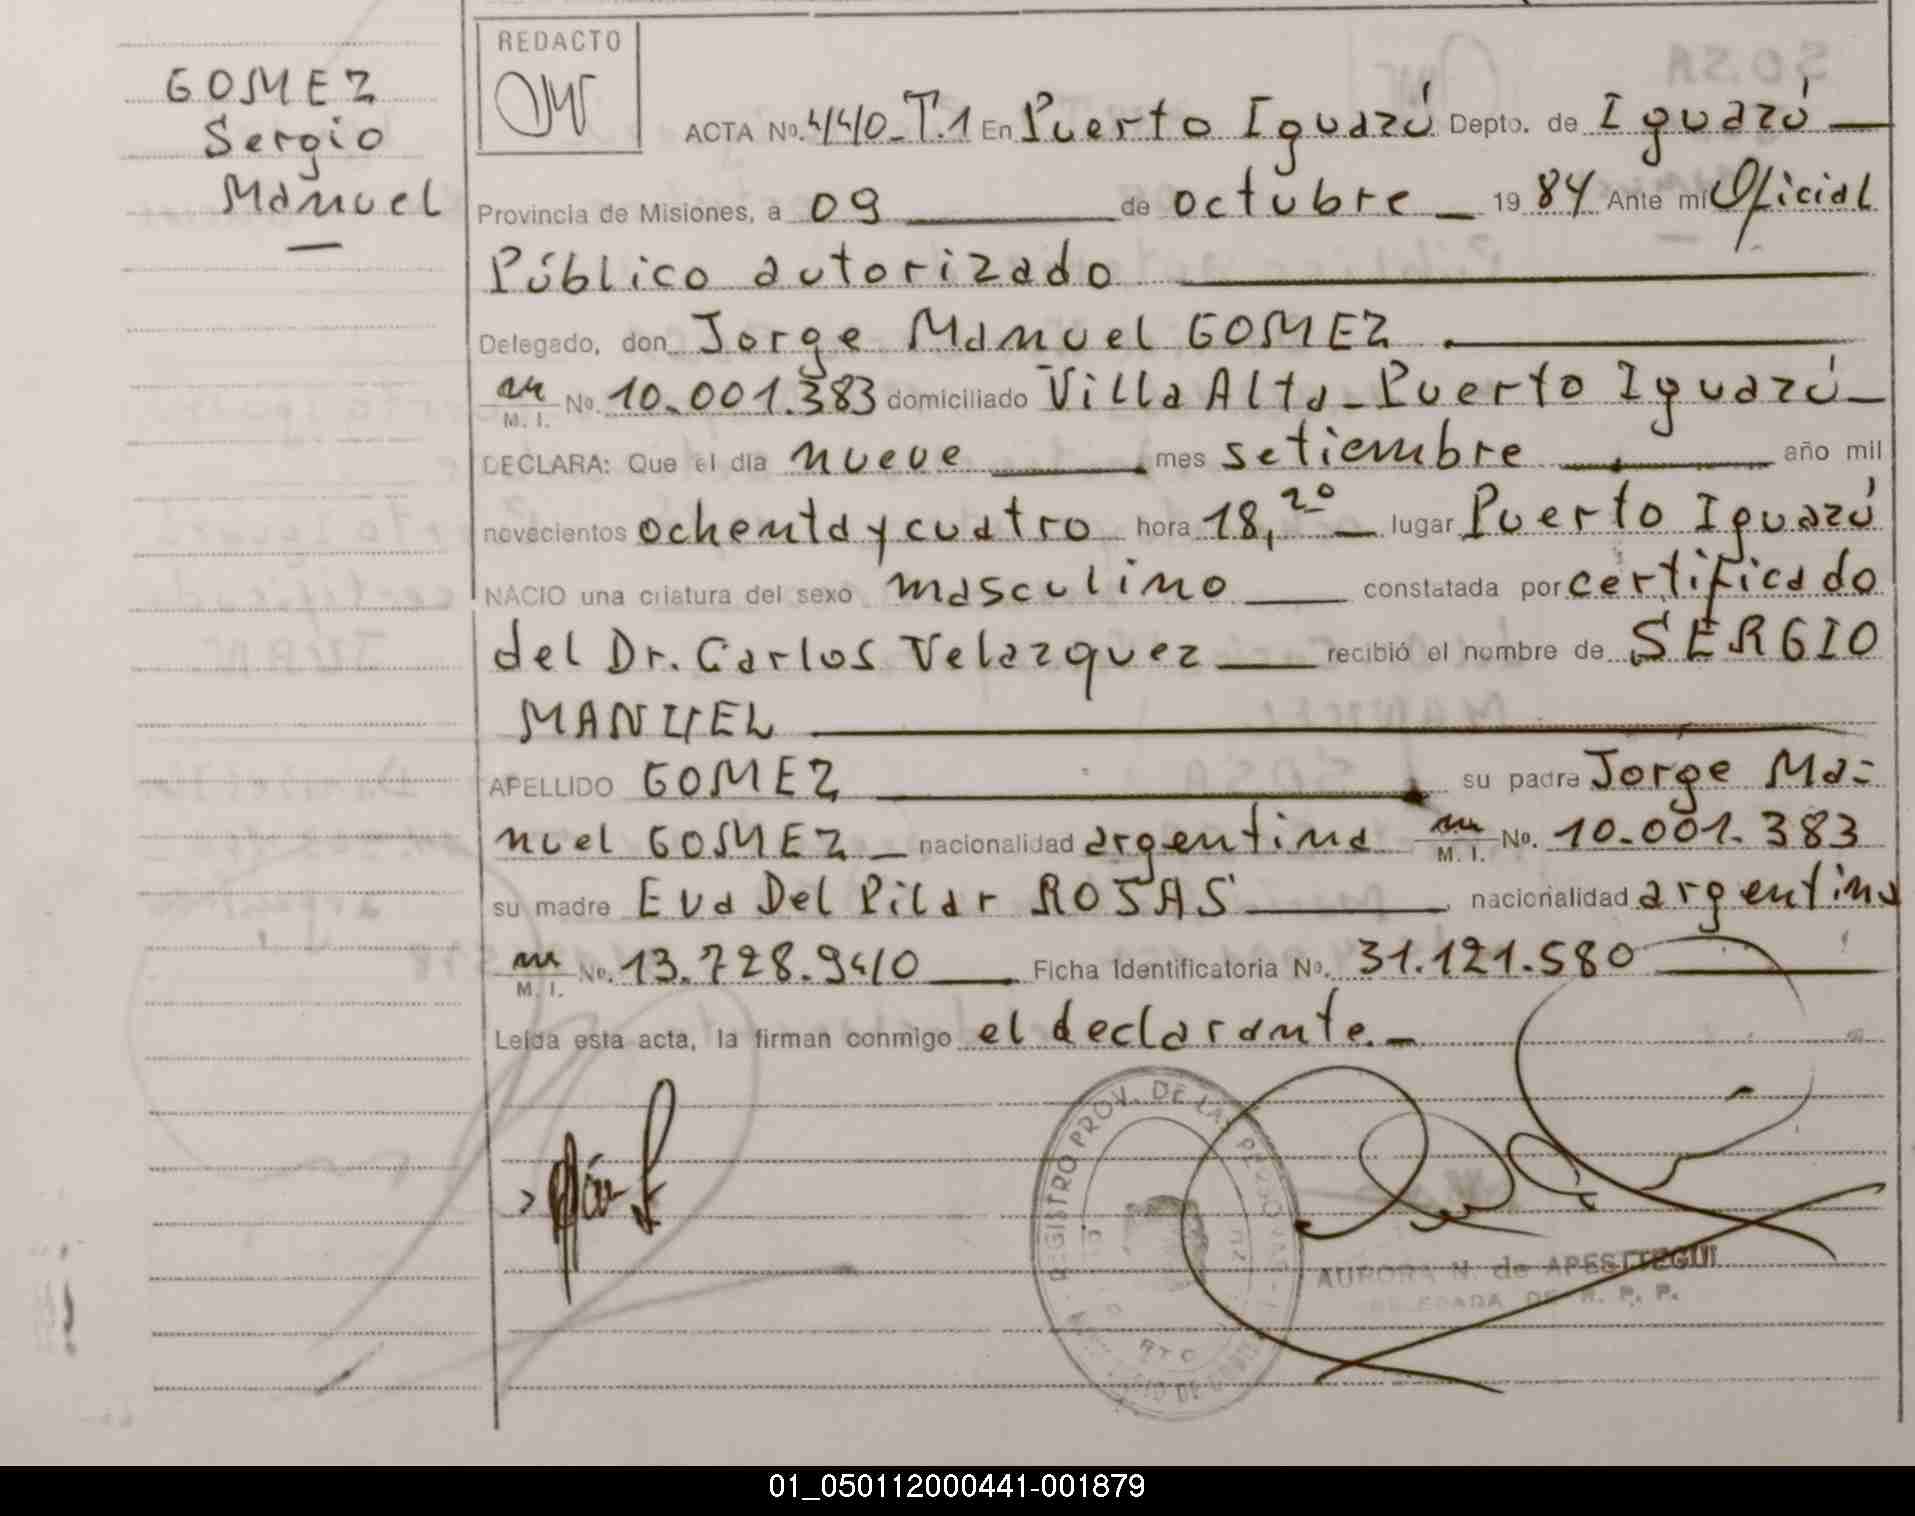 GOMEZ
Sergio
Manuel
REDACTO
ACTA No. 440_T.1 En Puerto Iguazú Depto. de Iguazú
Provincia de Misiones, a 09 de octubre 1984 Ante mi Oficial
Público autorizado
Delegado, don Jorge Manuel GOMEZ
M. I. No. 10.001.383 domiciliado Villa Alta - Puerto Iguazú
DECLARA: Que el dia nueve mes setiembre año mil
novecientos ochenta y cuatro hora 18,20 lugar Puerto Iguazú
NACIO una criatura del sexo masculino constatada por certificado
del Dr. Carlos Velazquez recibió el nombre de SERGIO
MANUEL
APELLIDO GOMEZ su padre Jorge Ma=
nuel GOMEZ nacionalidad argentina M. I. No. 10.001.383
su madre Eva Del Pilar ROSAS nacionalidad argentina
M. I. No. 13.728.940 Ficha Identificatoria No. 31.121.580
Leída esta acta, la firman conmigo el declarante.
REGISTRO PROV. DE LAS PERSONAS
AURORA N. de APESTEGUI
DELEGADA DE R. P. P.
01_050112000441-001879